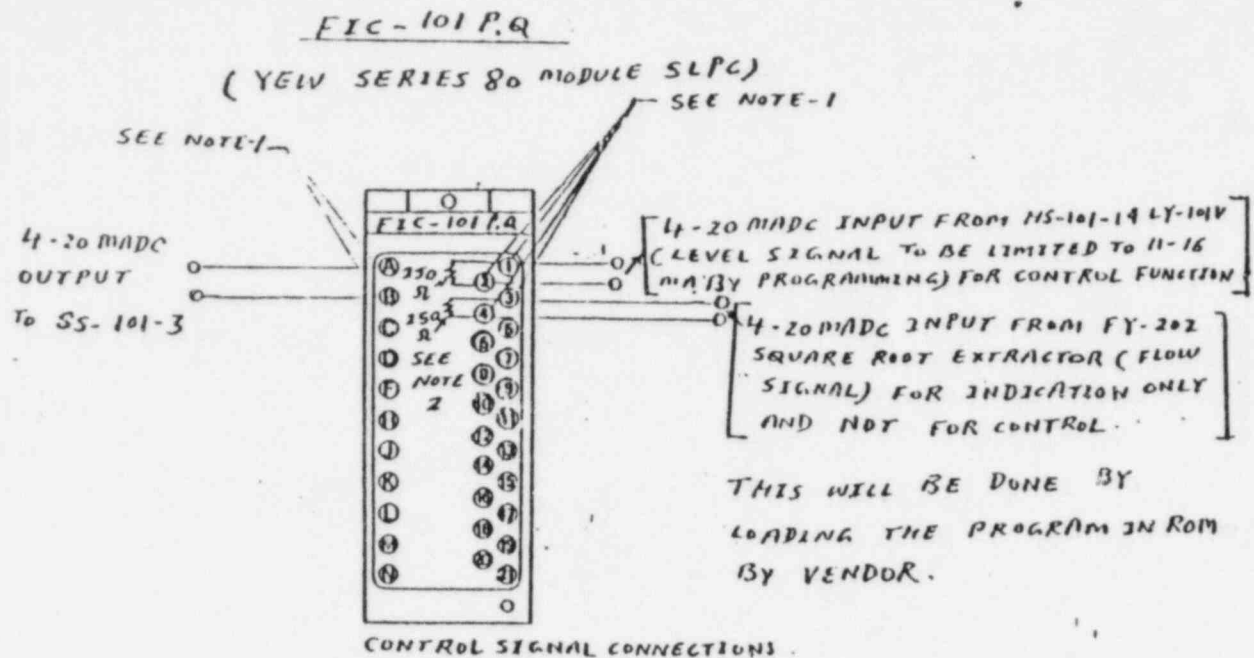 FIC-101 P.Q
(YEW SERIES 80 MODULE SLPC)
SEE NOTE-1
SEE NOTE-1
FIC-101 P.Q
4-20 MADC
OUTPUT
TO SS-101-3
A
B
C
D
F
H
J
K
L
M
N
250
Ω
250
Ω
SEE
NOTE
2
1
2
3
4
5
6
7
8
9
10
11
12
13
14
15
16
17
18
19
20
21
4-20 MADC INPUT FROM NS-101-14 LY-101V
(LEVEL SIGNAL TO BE LIMITED TO 11-16
MA BY PROGRAMMING) FOR CONTROL FUNCTION
4-20 MADC INPUT FROM FY-202
SQUARE ROOT EXTRACTOR (FLOW
SIGNAL) FOR INDICATION ONLY
AND NOT FOR CONTROL.
THIS WILL BE DONE BY
LOADING THE PROGRAM IN ROM
BY VENDOR.
CONTROL SIGNAL CONNECTIONS.